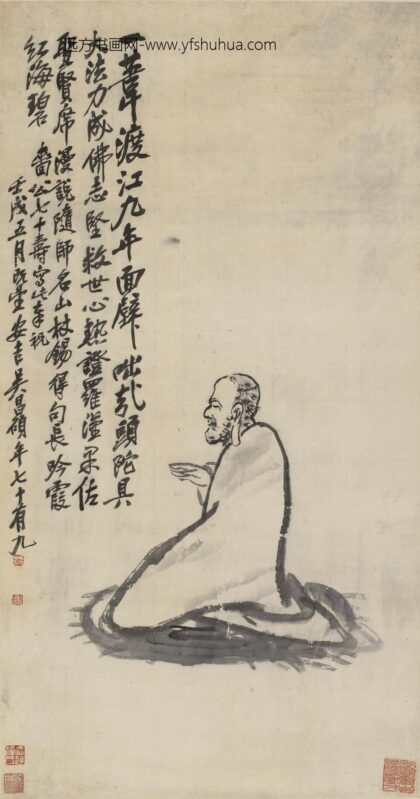 远方书画网--www.yfshuhua.com
一葦渡江九年面壁咄哉頭陀具
大法力成佛志堅救世心熱證羅漢果佐
聖賢席漫說隨師名山杖錫得句長吟霞
紅海碧
嗇公七十壽寫此奉祝
壬戌五月既望安吉吳昌碩年七十有九